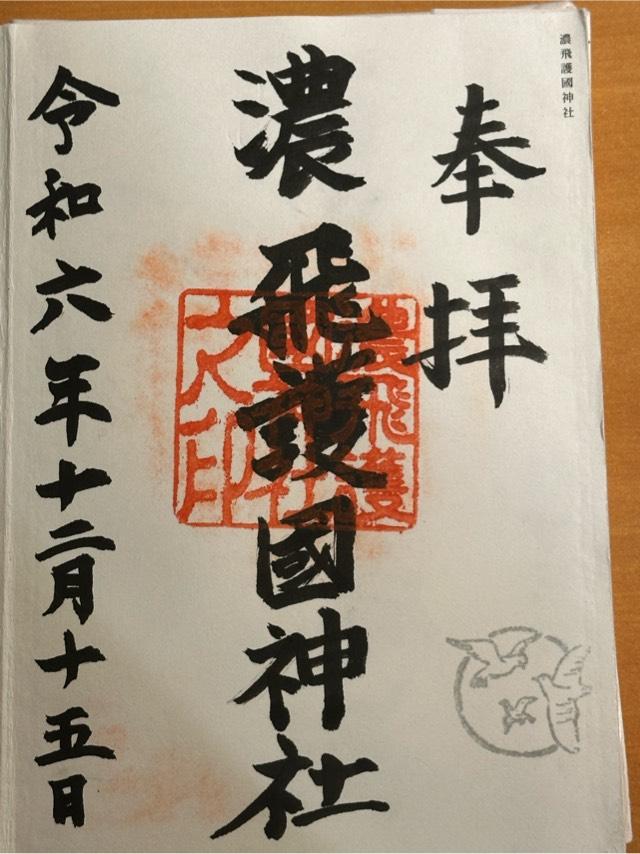 濃飛護國神社
奉拝
濃飛護國神社
令和六年十二月十五日